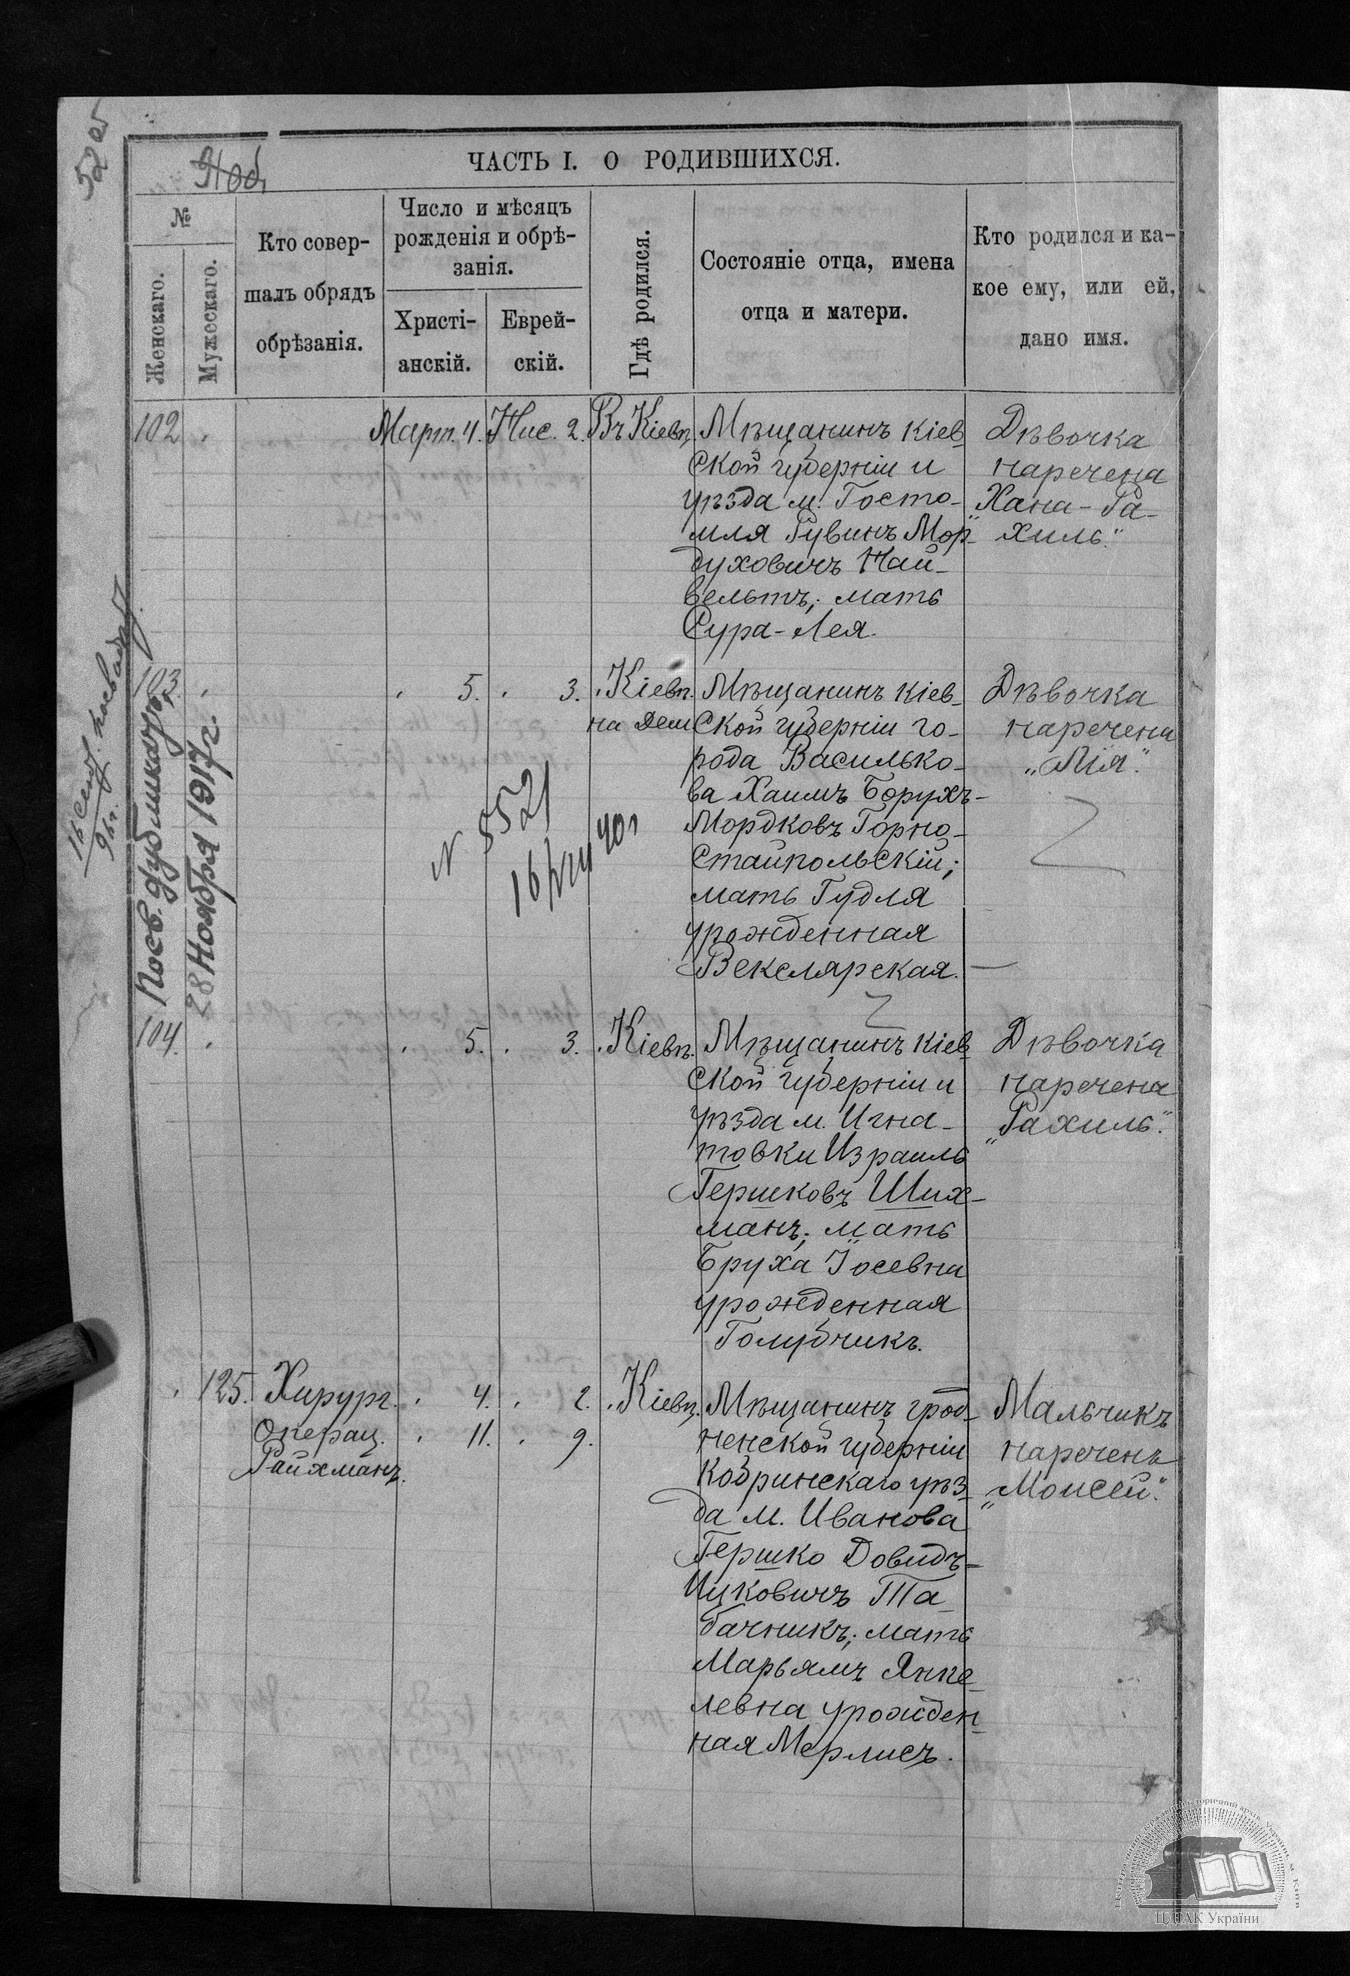 ЧАСТЬ I. О РОДИВШИХСЯ.
№
Женскаго.
Мужескаго.
Кто совер-
шалъ обрядъ
обрѣзанія.
Число и мѣсяцъ
рожденія и обрѣ-
занія.
Христі-
анскій.
Еврей-
скій.
Гдѣ родился.
Состояніе отца, имена
отца и матери.
Кто родился и ка-
кое ему, или ей,
дано имя.
102 Март. 4. Нис. 2. Въ Кіевѣ
Мѣщанинъ Кіев-
ской губерніи и
уѣзда м. Госто-
мля Рувинъ Мор-
духовичъ Най-
вельтъ; мать
Сура-Лея.
Дѣвочка
наречена
"Хана-Ра-
хиль."
103. 5. 3. Кіевѣ
на Дем
Мѣщанинъ Кіев-
ской губерніи го-
рода Василько-
ва Хаимъ Борухъ-
Мордковъ Горно-
стайпольскій;
мать Гудля
урожденная
Векслярская.
Дѣвочка
наречена
"Лія".
28 Ноября 1917 г.
N 5521
104. 5. 3. Кіевѣ.
Мѣщанинъ Кіев-
ской губерніи и
уѣзда м. Игна-
товки Израиль
Гершковъ Ших-
манъ; мать
Бруха Іосевна
урожденная
Голубчикъ.
Дѣвочка
наречена
"Рахиль".
125. Хирург. 4. 2. Кіевѣ.
Операц. 11. 9.
Райхманъ.
Мѣщанинъ грод-
ненской губерніи
Кобринскаго уѣз-
да м. Иванова
Гершко Довидъ-
Ицковичъ Та-
бачникъ; мать
Марьямъ Янке-
левна урожден-
ная Мерлисъ.
Мальчикъ
нареченъ
"Моисей".
ЦДІАК України